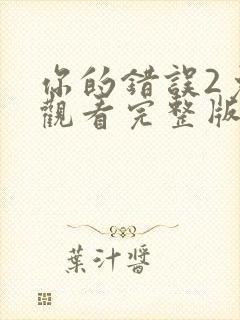 你的錯誤2
觀看完整版
葉汁醬